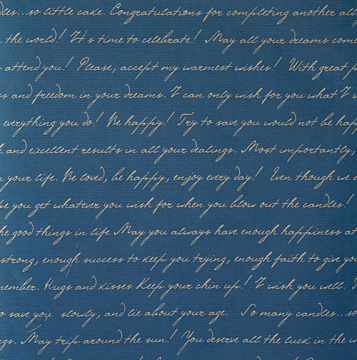 dles...so little cake. Congratulations for completing another
the world! It's time to celebrate! May all your dreams come
attend you! Please, accept my warmest wishes! With great
and freedom in your dreams. I can only wish for you what I
everything you do! Be happy! Try to save you would not be hap
and excellent results in all your dealings. Most importantly,
your life. Be loved, be happy, enjoy every day! Even though we
you get whatever you wish for when you blow out the candles!
he good things in life May you always have enough happiness at
strong, enough success to keep you trying, enough faith to give you
member. Hugs and kisses Keep your chin up! I wish you well.
save you slowly, and lie about your age. So many candles...so
gs. May trip around the sun! You deserve all the luck in the